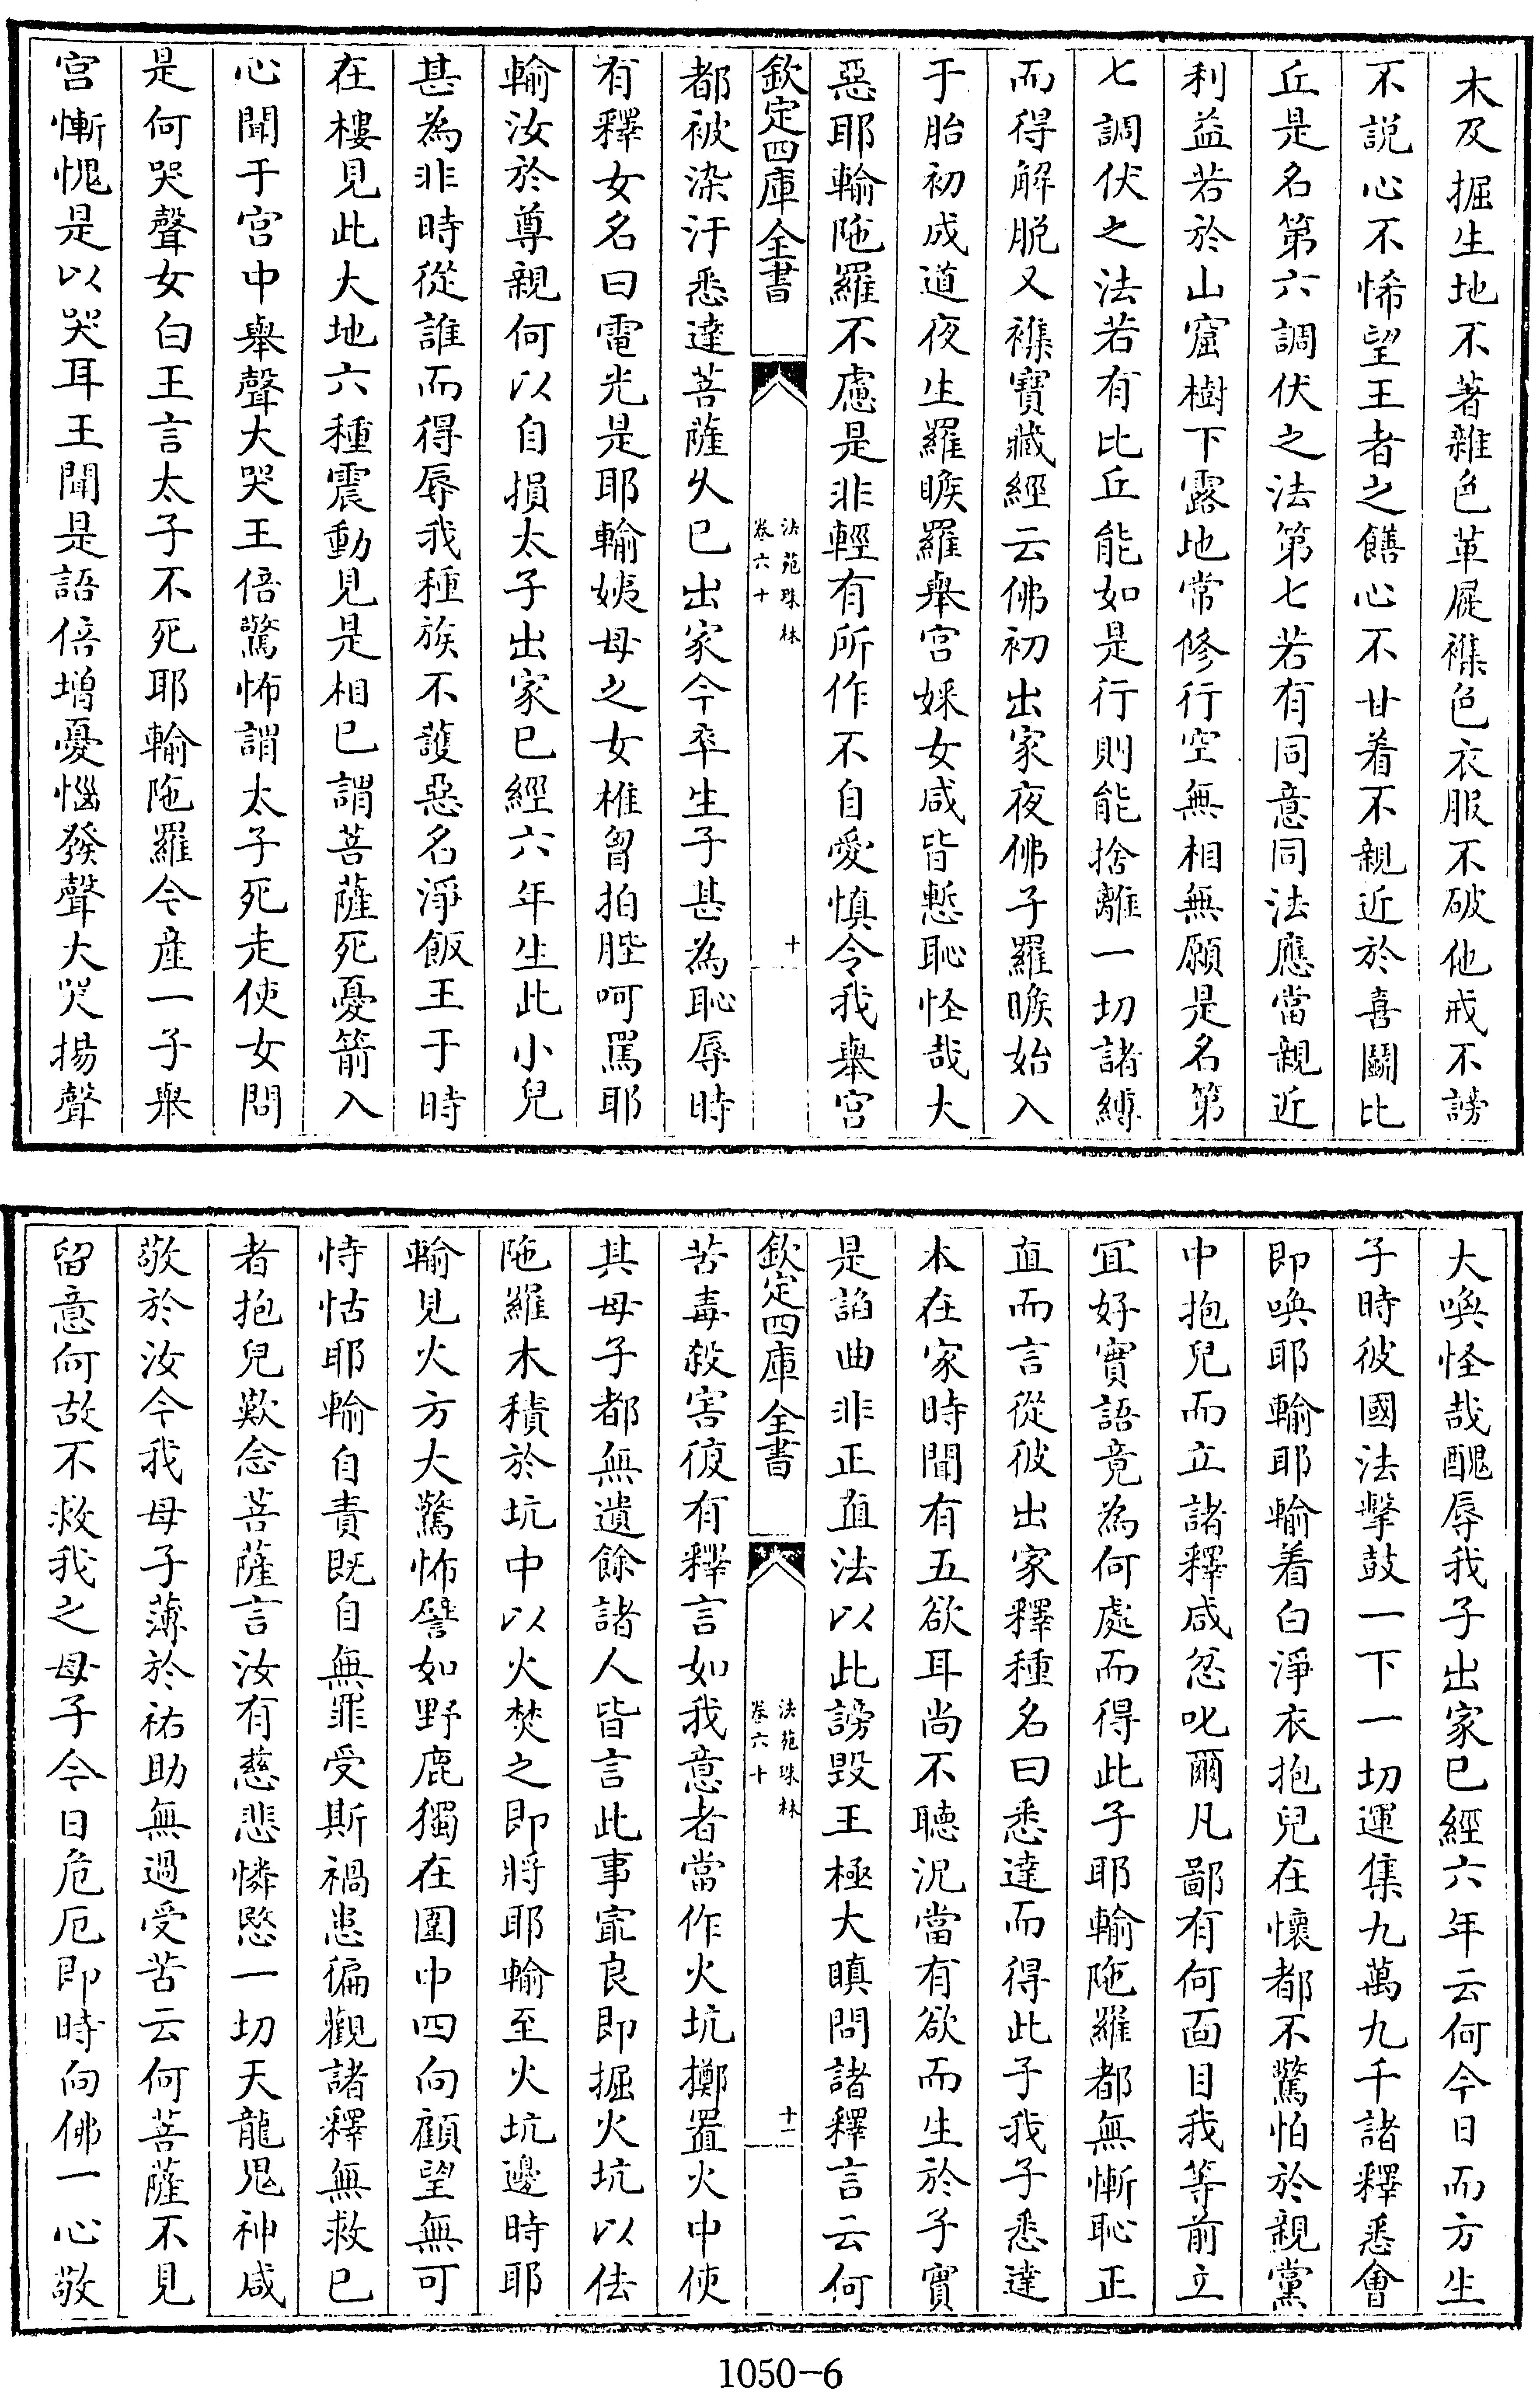 木及掘生地不著雜色革屣襍色衣服不破他戒不謗
不説心不悕望王者之饍心不甘着不親近於喜鬭比
丘是名第六調伏之法第七若有同意同法應當親近
利益若於山窟樹下露地常修行空無相無願是名第
七調伏之法若有比丘能如是行則能捨離一切諸縛
而得解脱又襍寶藏經云佛初出家夜佛子羅睺始入
于胎初成道夜生羅睺羅舉宫婇女咸皆慙恥怪哉大
惡耶輸陁羅不慮是非輕有所作不自愛慎令我舉宫
欽定四庫全書
法苑珠林
卷六十
十
都被染汙悉達菩薩久已出家今卒生子甚為恥辱時
有釋女名曰電光是耶輸姨母之女椎胷拍髀呵罵耶
輸汝於尊親何以自損太子出家已經六年生此小兒
甚為非時從誰而得辱我種族不護惡名淨飯王于時
在樓見此大地六種震動見是相已謂菩薩死憂箭入
心聞于宫中舉聲大哭王倍驚怖謂太子死走使女問
是何哭聲女白王言太子不死耶輸陁羅今産一子舉
宫慚愧是以哭耳王聞是語倍增憂惱發聲大哭揚聲
大喚怪哉醜辱我子出家已經六年云何今日而方生
子時彼國法擊鼓一下一切運集九萬九千諸釋悉會
即喚耶輸耶輸着白淨衣抱兒在懷都不驚怕於親黨
中抱兒而立諸釋咸忿叱爾凡鄙有何面目我等前立
冝好實語竟為何處而得此子耶輸陁羅都無慚恥正
直而言從彼出家釋種名曰悉達而得此子我子悉達
本在家時聞有五欲耳尚不聽況當有欲而生於子實
是諂曲非正直法以此謗毁王極大瞋問諸釋言云何
欽定四庫全書
法苑珠林
卷六十
十一
苦毒殺害復有釋言如我意者當作火坑擲置火中使
其母子都無遺餘諸人皆言此事寔良即掘火坑以佉
陁羅木積於坑中以火焚之即將耶輸至火坑邊時耶
輸見火方大驚怖譬如野鹿獨在圍中四向顧望無可
恃怙耶輸自責既自無罪受斯禍患徧觀諸釋無救已
者抱兒歎念菩薩言汝有慈悲憐愍一切天龍鬼神咸
敬於汝今我母子薄於祐助無過受苦云何菩薩不見
留意何故不救我之母子今日危厄即時向佛一心敬
1050-6